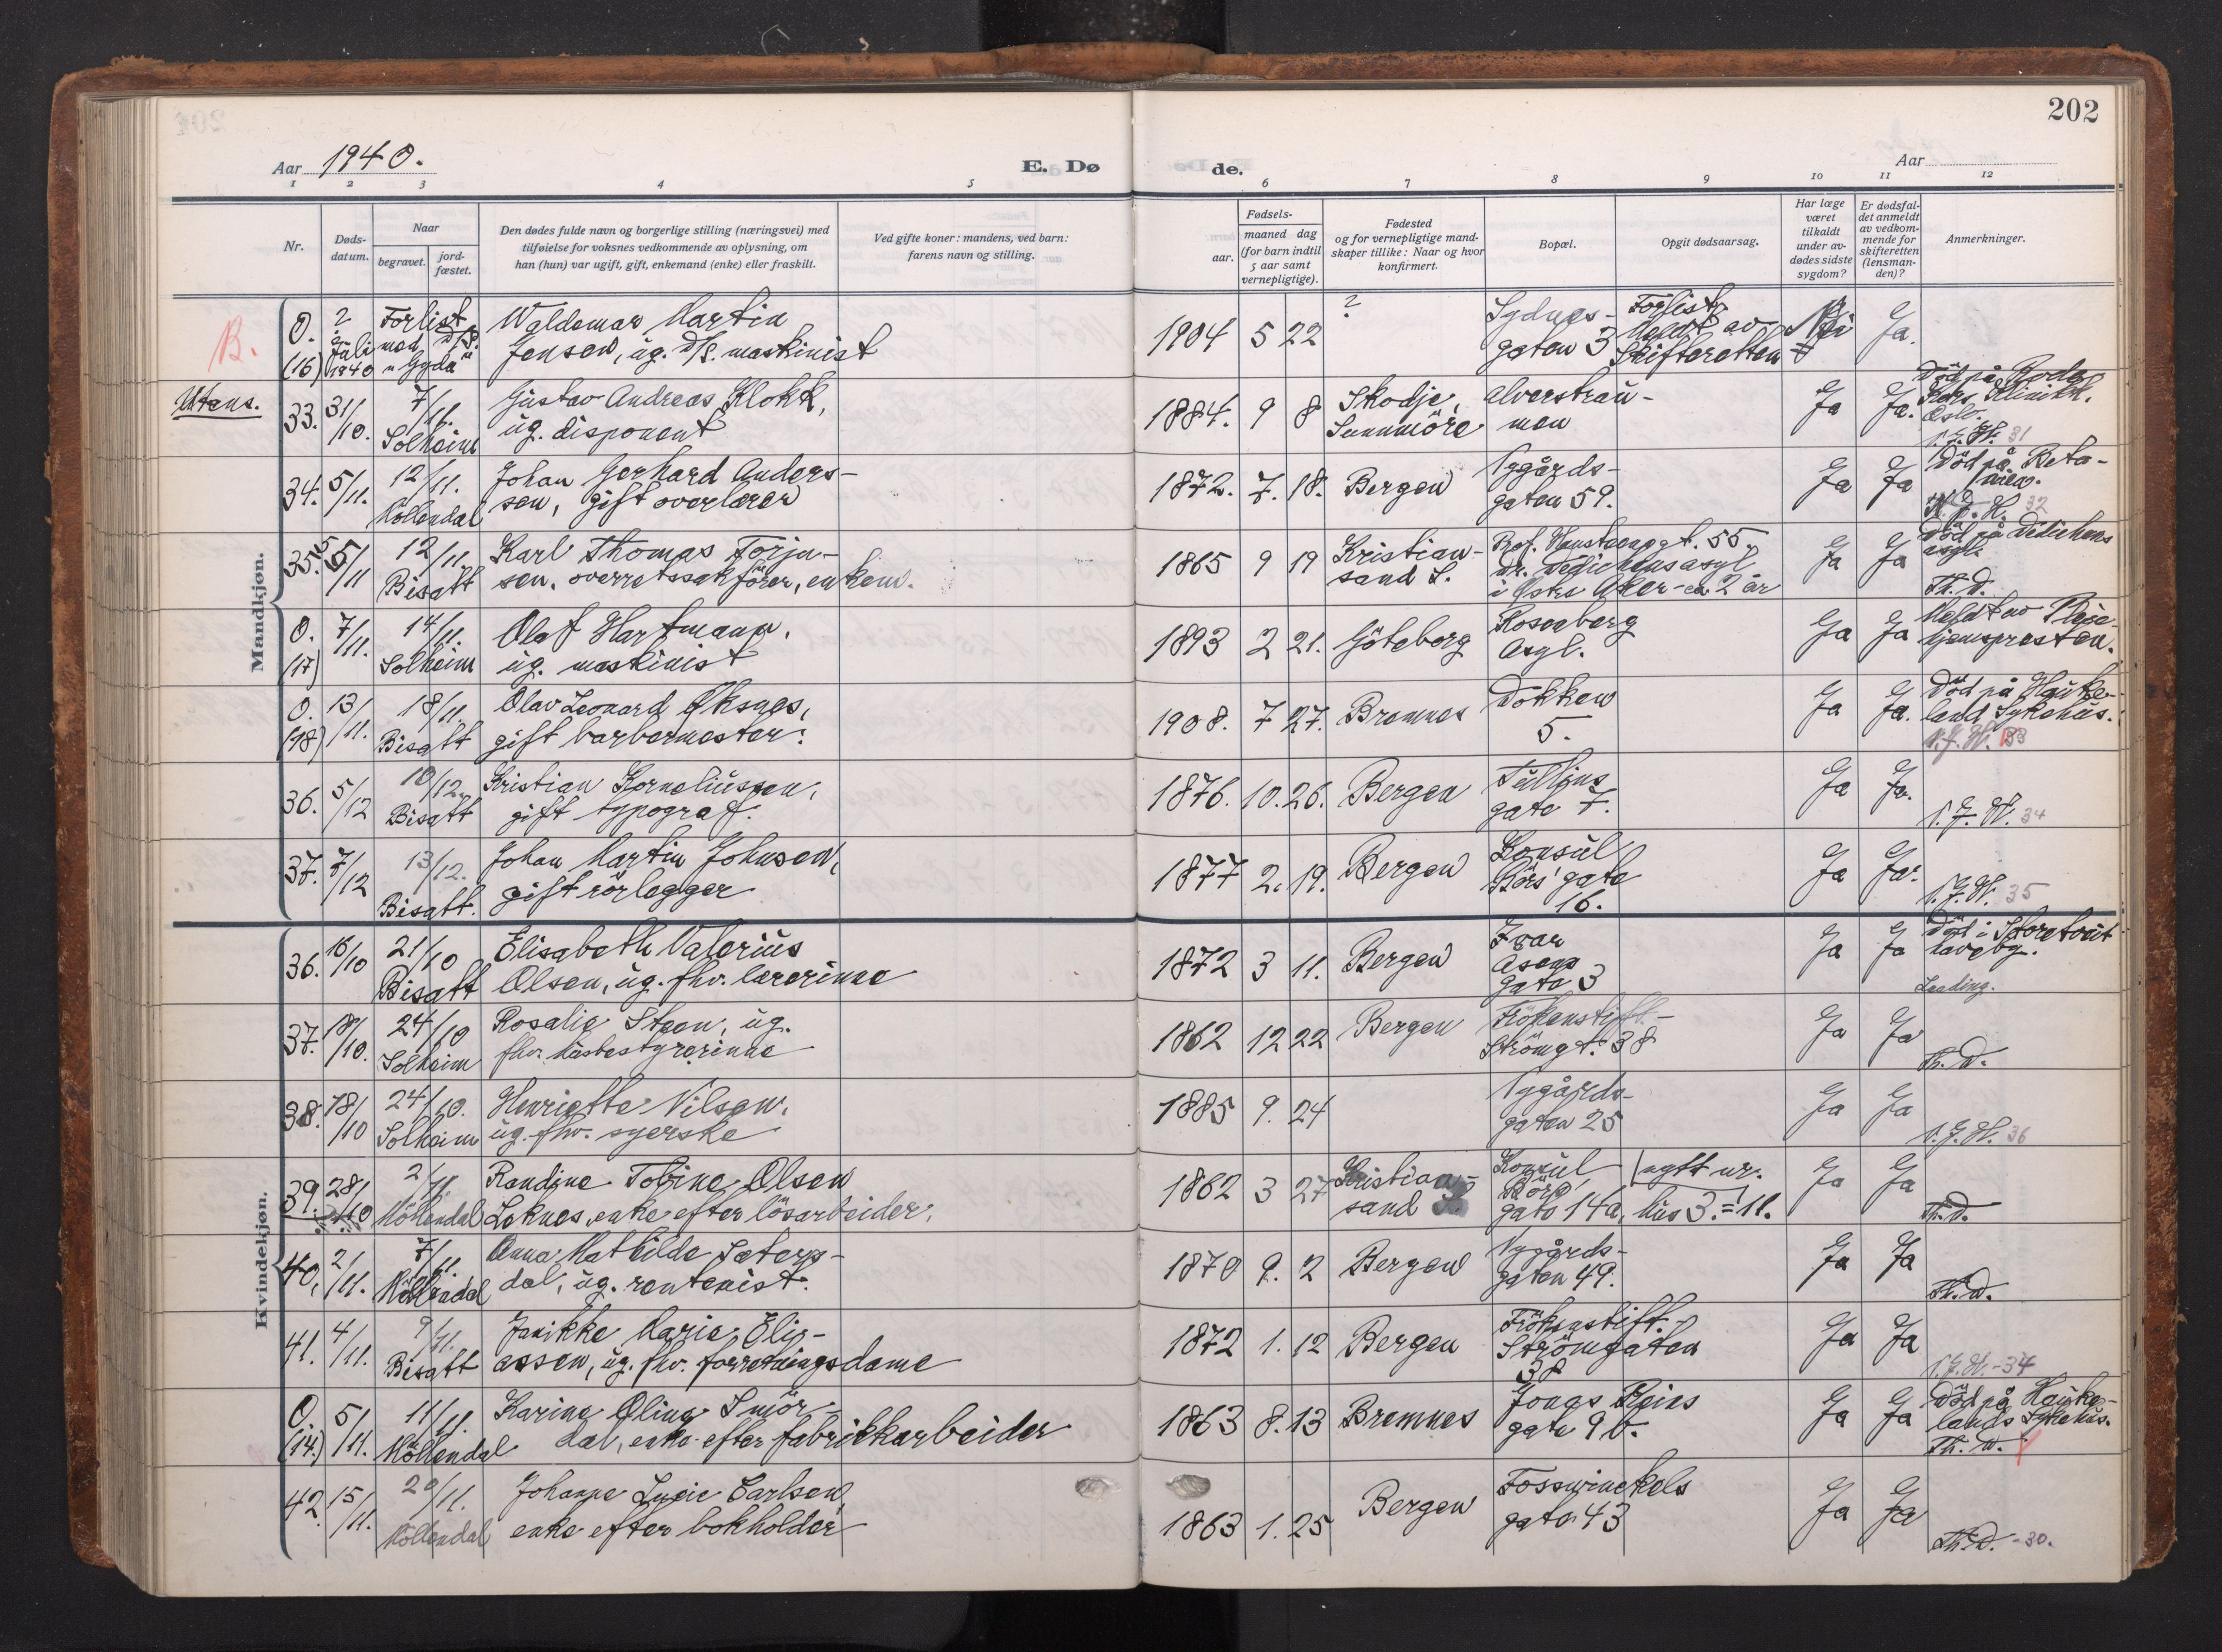 202
Aar 1940.
E. Dø
de.
Aar
1 2 3 4 5 6 7 8 9 10 11 12
Nr.
Døds-
datum.
Naar
begravet.
jord-
fæstet.
Den dødes fulde navn og borgerlige stilling (næringsvei) med
tilføielse for voksnes vedkommende av oplysning, om
han (hun) var ugift, gift, enkemand (enke) eller fraskilt.
Ved gifte koner: mandens, ved barn:
farens navn og stilling.
Fødsels-
aar.
maaned dag
(for barn indtil
5 aar samt
vernepligtige).
Fødested
og for vernepligtige mand-
skaper tillike: Naar og hvor
konfirmert.
Bopæl.
Opgit dødsaarsag.
Har læge
været
tilkaldt
under av-
dødes sidste
sygdom?
Er dødsfal-
det anmeldt
av vedkom-
mende for
skifteretten
(lensman-
den)?
Anmerkninger.
Mandkjøn.
B.
O. ? Forlist Waldemar Martin 1904 5 22 ? Sydnes- Forlist Nei Ja.
(16) Juli 1940 med D/S. "Gyda" Jensen, ug. D/S. maskinist gaten 3 Meldt av Skifteretten
Utens.
33. 31/10. 7/11. Gustav Andreas Klokk, 1884. 9 8 Skodje, Alverstrau- Ja Ja. Död på Röde
Solheim ug. disponent Sunnmöre men Kors Klinikk. Oslo.
N.J.H. 31
34. 5/11. 12/11. Johan Gerhard Anders- 1872. 7. 18. Bergen Nygårds- Ja Ja Död på Beta-
Möllendal sen, gift overlærer gaten 59. nien.
32
35. 5/11 12/11. Karl Thomas Torju- 1865 9 19 Kristian- Prof. Hansteensgt. 55. Ja Ja Död på Dedichens
Bisatt sen, overretssakförer, enkem. sand S. Dr. Dedichens asyl asyl.
i Östre Aker - ca. 2 år Th. D.
O. 7/11. 14/11. Olaf Hartmann, 1893 2 21. Göteborg Rosenberg Ja Ja Meldt av Pleie-
(17) Solheim ug. maskinist Asyl. hjemspresten.
O. 13/11. 18/11. Olav Leonard Öksnes, 1908. 7 27. Bremnes Dokken Ja Ja. Död på Hauke-
(18) Bisatt gift barbermester. 5. land Sykehus.
N.J.H. 33
36. 5/12 10/12. Kristian Korneliussen, 1876. 10. 26. Bergen Tullins Ja Ja.
Bisatt gift typograf. gate 7. N.J.H. 34
37. 7/12 13/12. Johan Martin Johnsen, 1877 2. 19. Bergen Konsul Ja Ja.
Bisatt. gift rörlegger Börs' gate
16. N.J.H. 35
Kvindekjøn.
36. 16/10 21/10 Elisabeth Valerius 1872 3 11. Bergen Ivar Ja Ja Död i Storetveit
Bisatt Olsen, ug. fhv. lærerinne Asens haveby.
gate 3 Laading.
37. 18/10. 24/10 Rosalie Steen, ug. 1862 12 22 Bergen Frökenstift- Ja Ja
Solheim fhv. husbestyrerinne Strömgt. 38 Th. D.
38. 18/10 24/10. Henriette Nilsen, 1885 9. 24 Nygårds- Ja Ja
Solheim ug. fhv. syerske gaten 25 N.J.H. 36
39. 28/10 2/11. Randine Tobine Olsen 1862 3 27 Kristian- Konsul nytt nr. Ja Ja
Möllendal Leknes, enke efter lösarbeider. sand S. Börs gate 14a, hus 3. = 11. Th. D.
40. 2/11. 7/11. Anna Mathilde Sæters- 1870 9. 2 Bergen Nygårds- Ja Ja
Möllendal dal, ug. rentenist. gaten 49. Th. D.
41. 4/11. 9/11. Janikke Marie Eli- 1872 1. 12 Bergen Frökenstift- Ja Ja
Bisatt assen, ug. fhv. forretningsdame Strömgaten
38 N.J.H. - 37
O. 5/11. 11/11. Karine Oline Smör- 1863 8. 13 Bremnes Jonas Reins Ja Ja Död på Hauke-
(14.) Möllendal dal, enke efter fabrikkarbeider gate 9 b. lands Sykehus.
Th. D.
42. 15/11. 20/11. Johanne Lucie Carlsen, 1863 1. 25 Bergen Fosswinckels Ja Ja
Möllendal enke efter bokholder gate 43 Th. D. - 30.